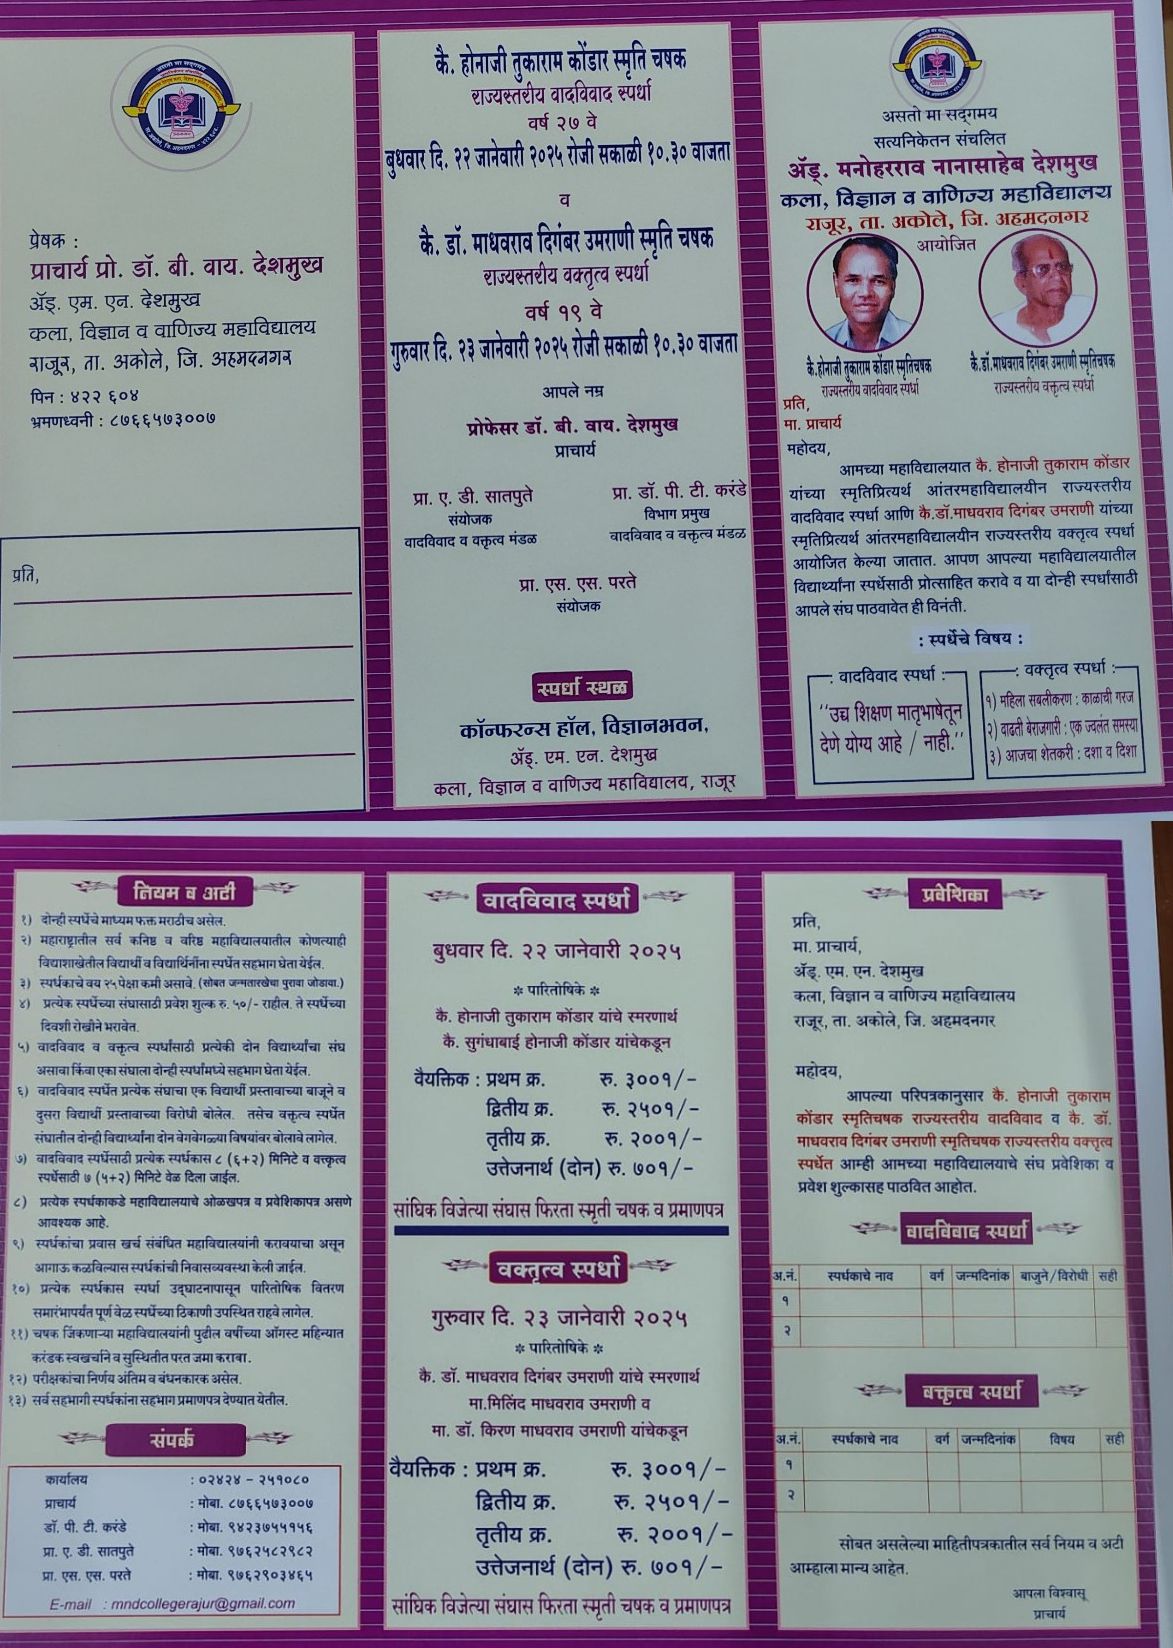 प्रेषक :
प्राचार्य प्रो. डॉ. बी. वाय. देशमुख
ॲड्. एम. एन. देशमुख
कला, विज्ञान व वाणिज्य महाविद्यालय
राजूर, ता. अकोले, जि. अहमदनगर
पिन : ४२२ ६०४
भ्रमणध्वनी : ८७६६५७३००७
प्रति,
कै. होनाजी तुकाराम कोंडार स्मृति चषक
राज्यस्तरीय वादविवाद स्पर्धा
वर्ष २७ वे
बुधवार दि. २२ जानेवारी २०२५ रोजी सकाळी १०.३० वाजता
व
कै. डॉ. माधवराव दिगंबर उमराणी स्मृति चषक
राज्यस्तरीय वक्तृत्व स्पर्धा
वर्ष १९ वे
गुरुवार दि. २३ जानेवारी २०२५ रोजी सकाळी १०.३० वाजता
आपले नम्र
प्रोफेसर डॉ. बी. वाय. देशमुख
प्राचार्य
प्रा. ए. डी. सातपुते
संयोजक
वादविवाद व वक्तृत्व मंडळ
प्रा. डॉ. पी. टी. करंडे
विभाग प्रमुख
वादविवाद व वक्तृत्व मंडळ
प्रा. एस. एस. परते
संयोजक
स्पर्धा स्थळ
कॉन्फरन्स हॉल, विज्ञानभवन,
ॲड्. एम. एन. देशमुख
कला, विज्ञान व वाणिज्य महाविद्यालय, राजूर
असतो मा सद्गमय
सत्यनिकेतन संचलित
ॲड्. मनोहरराव नानासाहेब देशमुख
कला, विज्ञान व वाणिज्य महाविद्यालय
राजूर, ता. अकोले, जि. अहमदनगर
आयोजित
कै.होनाजी तुकाराम कोंडार स्मृतिचषक
राज्यस्तरीय वादविवाद स्पर्धा
कै.डॉ.माधवराव दिगंबर उमराणी स्मृतिचषक
राज्यस्तरीय वक्तृत्व स्पर्धा
प्रति,
मा. प्राचार्य
महोदय,
आमच्या महाविद्यालयात कै. होनाजी तुकाराम कोंडार
यांच्या स्मृतिप्रित्यर्थ आंतरमहाविद्यालयीन राज्यस्तरीय
वादविवाद स्पर्धा आणि कै.डॉ.माधवराव दिगंबर उमराणी यांच्या
स्मृतिप्रित्यर्थ आंतरमहाविद्यालयीन राज्यस्तरीय वक्तृत्व स्पर्धा
आयोजित केल्या जातात. आपण आपल्या महाविद्यालयातील
विद्यार्थ्यांना स्पर्धेसाठी प्रोत्साहित करावे व या दोन्ही स्पर्धांसाठी
आपले संघ पाठवावेत ही विनंती.
: स्पर्धेचे विषय :
: वादविवाद स्पर्धा :
''उच्च शिक्षण मातृभाषेतून
देणे योग्य आहे / नाही.''
: वक्तृत्व स्पर्धा :
१) महिला सबलीकरण : काळाची गरज
२) वाढती बेरोजगारी : एक ज्वलंत समस्या
३) आजचा शेतकरी : दशा व दिशा
नियम व अटी
१) दोन्ही स्पर्धेचे माध्यम फक्त मराठीच असेल.
२) महाराष्ट्रातील सर्व कनिष्ठ व वरिष्ठ महाविद्यालयातील कोणत्याही
विद्याशाखेतील विद्यार्थी व विद्यार्थिनींना स्पर्धेत सहभाग घेता येईल.
३) स्पर्धकाचे वय २५ पेक्षा कमी असावे. (सोबत जन्मतारखेचा पुरावा जोडावा.)
४) प्रत्येक स्पर्धेच्या संघासाठी प्रवेश शुल्क रु. ५०/- राहील. ते स्पर्धेच्या
दिवशी रोखीने भरावेत.
५) वादविवाद व वक्तृत्व स्पर्धांसाठी प्रत्येकी दोन विद्यार्थ्यांचा संघ
असावा किंवा एका संघाला दोन्ही स्पर्धांमध्ये सहभाग घेता येईल.
६) वादविवाद स्पर्धेत प्रत्येक संघाचा एक विद्यार्थी प्रस्तावाच्या बाजूने व
दुसरा विद्यार्थी प्रस्तावाच्या विरोधी बोलेल. तसेच वक्तृत्व स्पर्धेत
संघातील दोन्ही विद्यार्थ्यांना दोन वेगवेगळ्या विषयांवर बोलावे लागेल.
७) वादविवाद स्पर्धेसाठी प्रत्येक स्पर्धकास ८ (६+२) मिनिटे व वक्तृत्व
स्पर्धेसाठी ७ (५+२) मिनिटे वेळ दिला जाईल.
८) प्रत्येक स्पर्धकाकडे महाविद्यालयाचे ओळखपत्र व प्रवेशिकापत्र असणे
आवश्यक आहे.
९) स्पर्धकांचा प्रवास खर्च संबंधित महाविद्यालयांनी करावयाचा असून
आगाऊ कळविल्यास स्पर्धकांची निवासव्यवस्था केली जाईल.
१०) प्रत्येक स्पर्धकास स्पर्धा उद्घाटनापासून पारितोषिक वितरण
समारंभापर्यंत पूर्ण वेळ स्पर्धेच्या ठिकाणी उपस्थित राहवे लागेल.
११) चषक जिंकणाऱ्या महाविद्यालयांनी पुढील वर्षीच्या ऑगस्ट महिन्यात
करंडक स्वखर्चाने व सुस्थितीत परत जमा करावा.
१२) परीक्षकांचा निर्णय अंतिम व बंधनकारक असेल.
१३) सर्व सहभागी स्पर्धकांना सहभाग प्रमाणपत्र देण्यात येतील.
संपर्क
कार्यालय : ०२४२४ - २५१०८०
प्राचार्य : मोबा. ८७६६५७३००७
डॉ. पी. टी. करंडे : मोबा. ९४२३७५५१५६
प्रा. ए. डी. सातपुते : मोबा. ९७६२५८२९८२
प्रा. एस. एस. परते : मोबा. ९७६२९०३४६५
E-mail : mndcollegerajur@gmail.com
वादविवाद स्पर्धा
बुधवार दि. २२ जानेवारी २०२५
* पारितोषिके *
कै. होनाजी तुकाराम कोंडार यांचे स्मरणार्थ
कै. सुगंधाबाई होनाजी कोंडार यांचेकडून
वैयक्तिक : प्रथम क्र. रु. ३००१/-
द्वितीय क्र. रु. २५०१/-
तृतीय क्र. रु. २००१/-
उत्तेजनार्थ (दोन) रु. ७०१/-
सांघिक विजेत्या संघास फिरता स्मृती चषक व प्रमाणपत्र
वक्तृत्व स्पर्धा
गुरुवार दि. २३ जानेवारी २०२५
* पारितोषिके *
कै. डॉ. माधवराव दिगंबर उमराणी यांचे स्मरणार्थ
मा.मिलिंद माधवराव उमराणी व
मा. डॉ. किरण माधवराव उमराणी यांचेकडून
वैयक्तिक : प्रथम क्र. रु. ३००१/-
द्वितीय क्र. रु. २५०१/-
तृतीय क्र. रु. २००१/-
उत्तेजनार्थ (दोन) रु. ७०१/-
सांघिक विजेत्या संघास फिरता स्मृती चषक व प्रमाणपत्र
प्रवेशिका
प्रति,
मा. प्राचार्य,
ॲड्. एम. एन. देशमुख
कला, विज्ञान व वाणिज्य महाविद्यालय
राजूर, ता. अकोले, जि. अहमदनगर
महोदय,
आपल्या परिपत्रकानुसार कै. होनाजी तुकाराम
कोंडार स्मृतिचषक राज्यस्तरीय वादविवाद व कै. डॉ.
माधवराव दिगंबर उमराणी स्मृतिचषक राज्यस्तरीय वक्तृत्व
स्पर्धेत आम्ही आमच्या महाविद्यालयाचे संघ प्रवेशिका व
प्रवेश शुल्कासह पाठवित आहोत.
वादविवाद स्पर्धा
अ.नं. स्पर्धकाचे नाव वर्ग जन्मदिनांक बाजुने/विरोधी सही
१
२
वक्तृत्व स्पर्धा
अ.नं. स्पर्धकाचे नाव वर्ग जन्मदिनांक विषय सही
१
२
सोबत असलेल्या माहितीपत्रकातील सर्व नियम व अटी
आम्हाला मान्य आहेत.
आपला विश्वासू
प्राचार्य